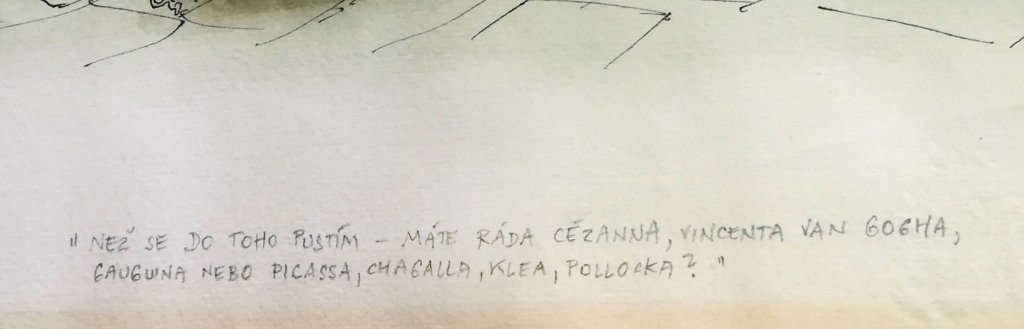 " NEŽ SE DO TOHO PUSTÍM – MÁTE RÁDA CÉZANNA, VINCENTA VAN GOGHA,
GAUGUINA NEBO PICASSA, CHAGALLA, KLEA, POLLOCKA? "